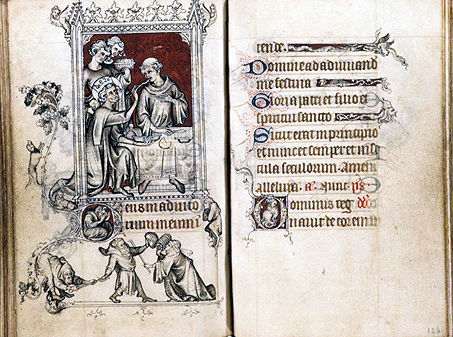 Deus in adiuto
rium meum in
tende.
Domine ad adiuvand
me festina
Gloria patri et filio et
spiritui sancto
Sicut erat in principio
et nunc et semper et in se
cula seculorum. Amen
alleluia. a. ps
Dominus reg
navit decorem